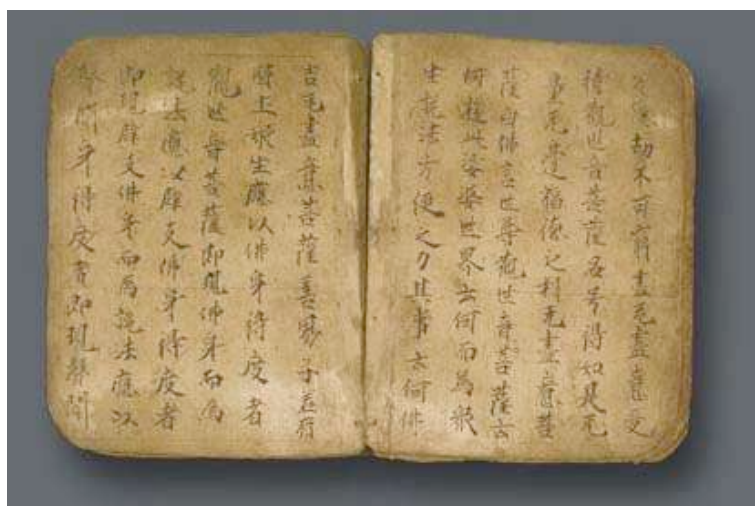 億劫不可窮盡无盡意受
持觀世音菩薩名号得如是无
量无邊福德之利无盡意菩
薩白佛言世尊觀世音菩薩云
何遊此娑婆世界云何而為衆
生說法方便之力其事云何佛
告无盡意菩薩善男子若有
國土衆生應以佛身得度者
觀世音菩薩即現佛身而為
說法應以辟支佛身得度者
即現辟支佛身而為說法應以
聲聞身得度者即現聲聞